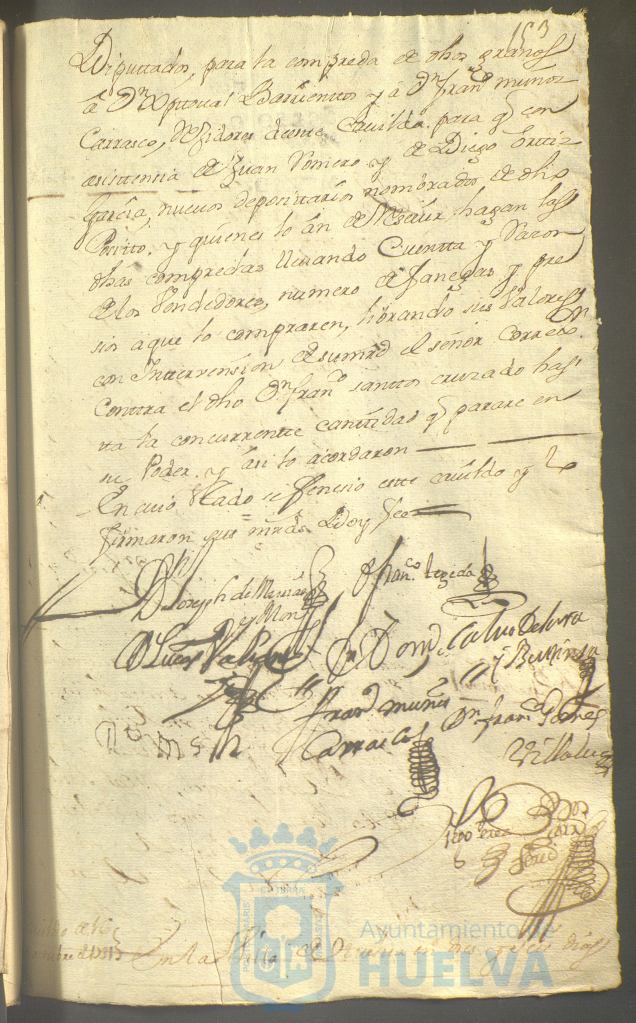 153
Diputtados, para la compreda de dhos granos
á Dn Xptoual Barrienttos y á Dn Franco muñoz
Carrasco, Rexidores deeste Cauildo. para q con
asistencia de Juan Romero y de Diego Orttiz
garcia, nueuos depositarios nombrados de dho
Posito. y quienes lo án de Reseuir hagan las
dhas compredas lleuando Cuentta y Razon
de los Vendedores, numero de fanegas y pre
sios a que lo compraren, librando sus Valores
con Yntervension de su mrd el señor Corregor
Conttra el dho Dn Franco santtos cruzado has
ta la concurrente canttidad q parare en
su Poder. y asi lo acordaron
En cuio esttado se fenesio este cauildo y lo
firmaron sus mrds Doy fee
Dn Joseph de
Dn Franco tegeda
Dn Luis
Dn Dom Calvo De Lara
Franco muñoz
Carrasco
Dn Franco
Villa
En la Villa de en dies y seis dias
Ayuntamiento de
HUELVA